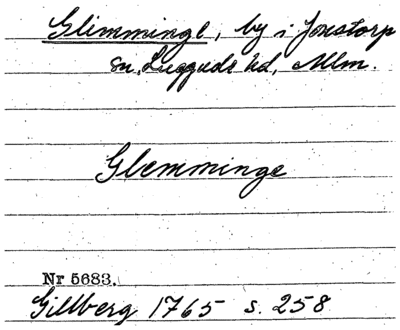 Glimminge, by i Jonstorp
sn, Luggude hd, Mlm.
Glemminge
Nr 5683.
Gillberg 1765 s. 258